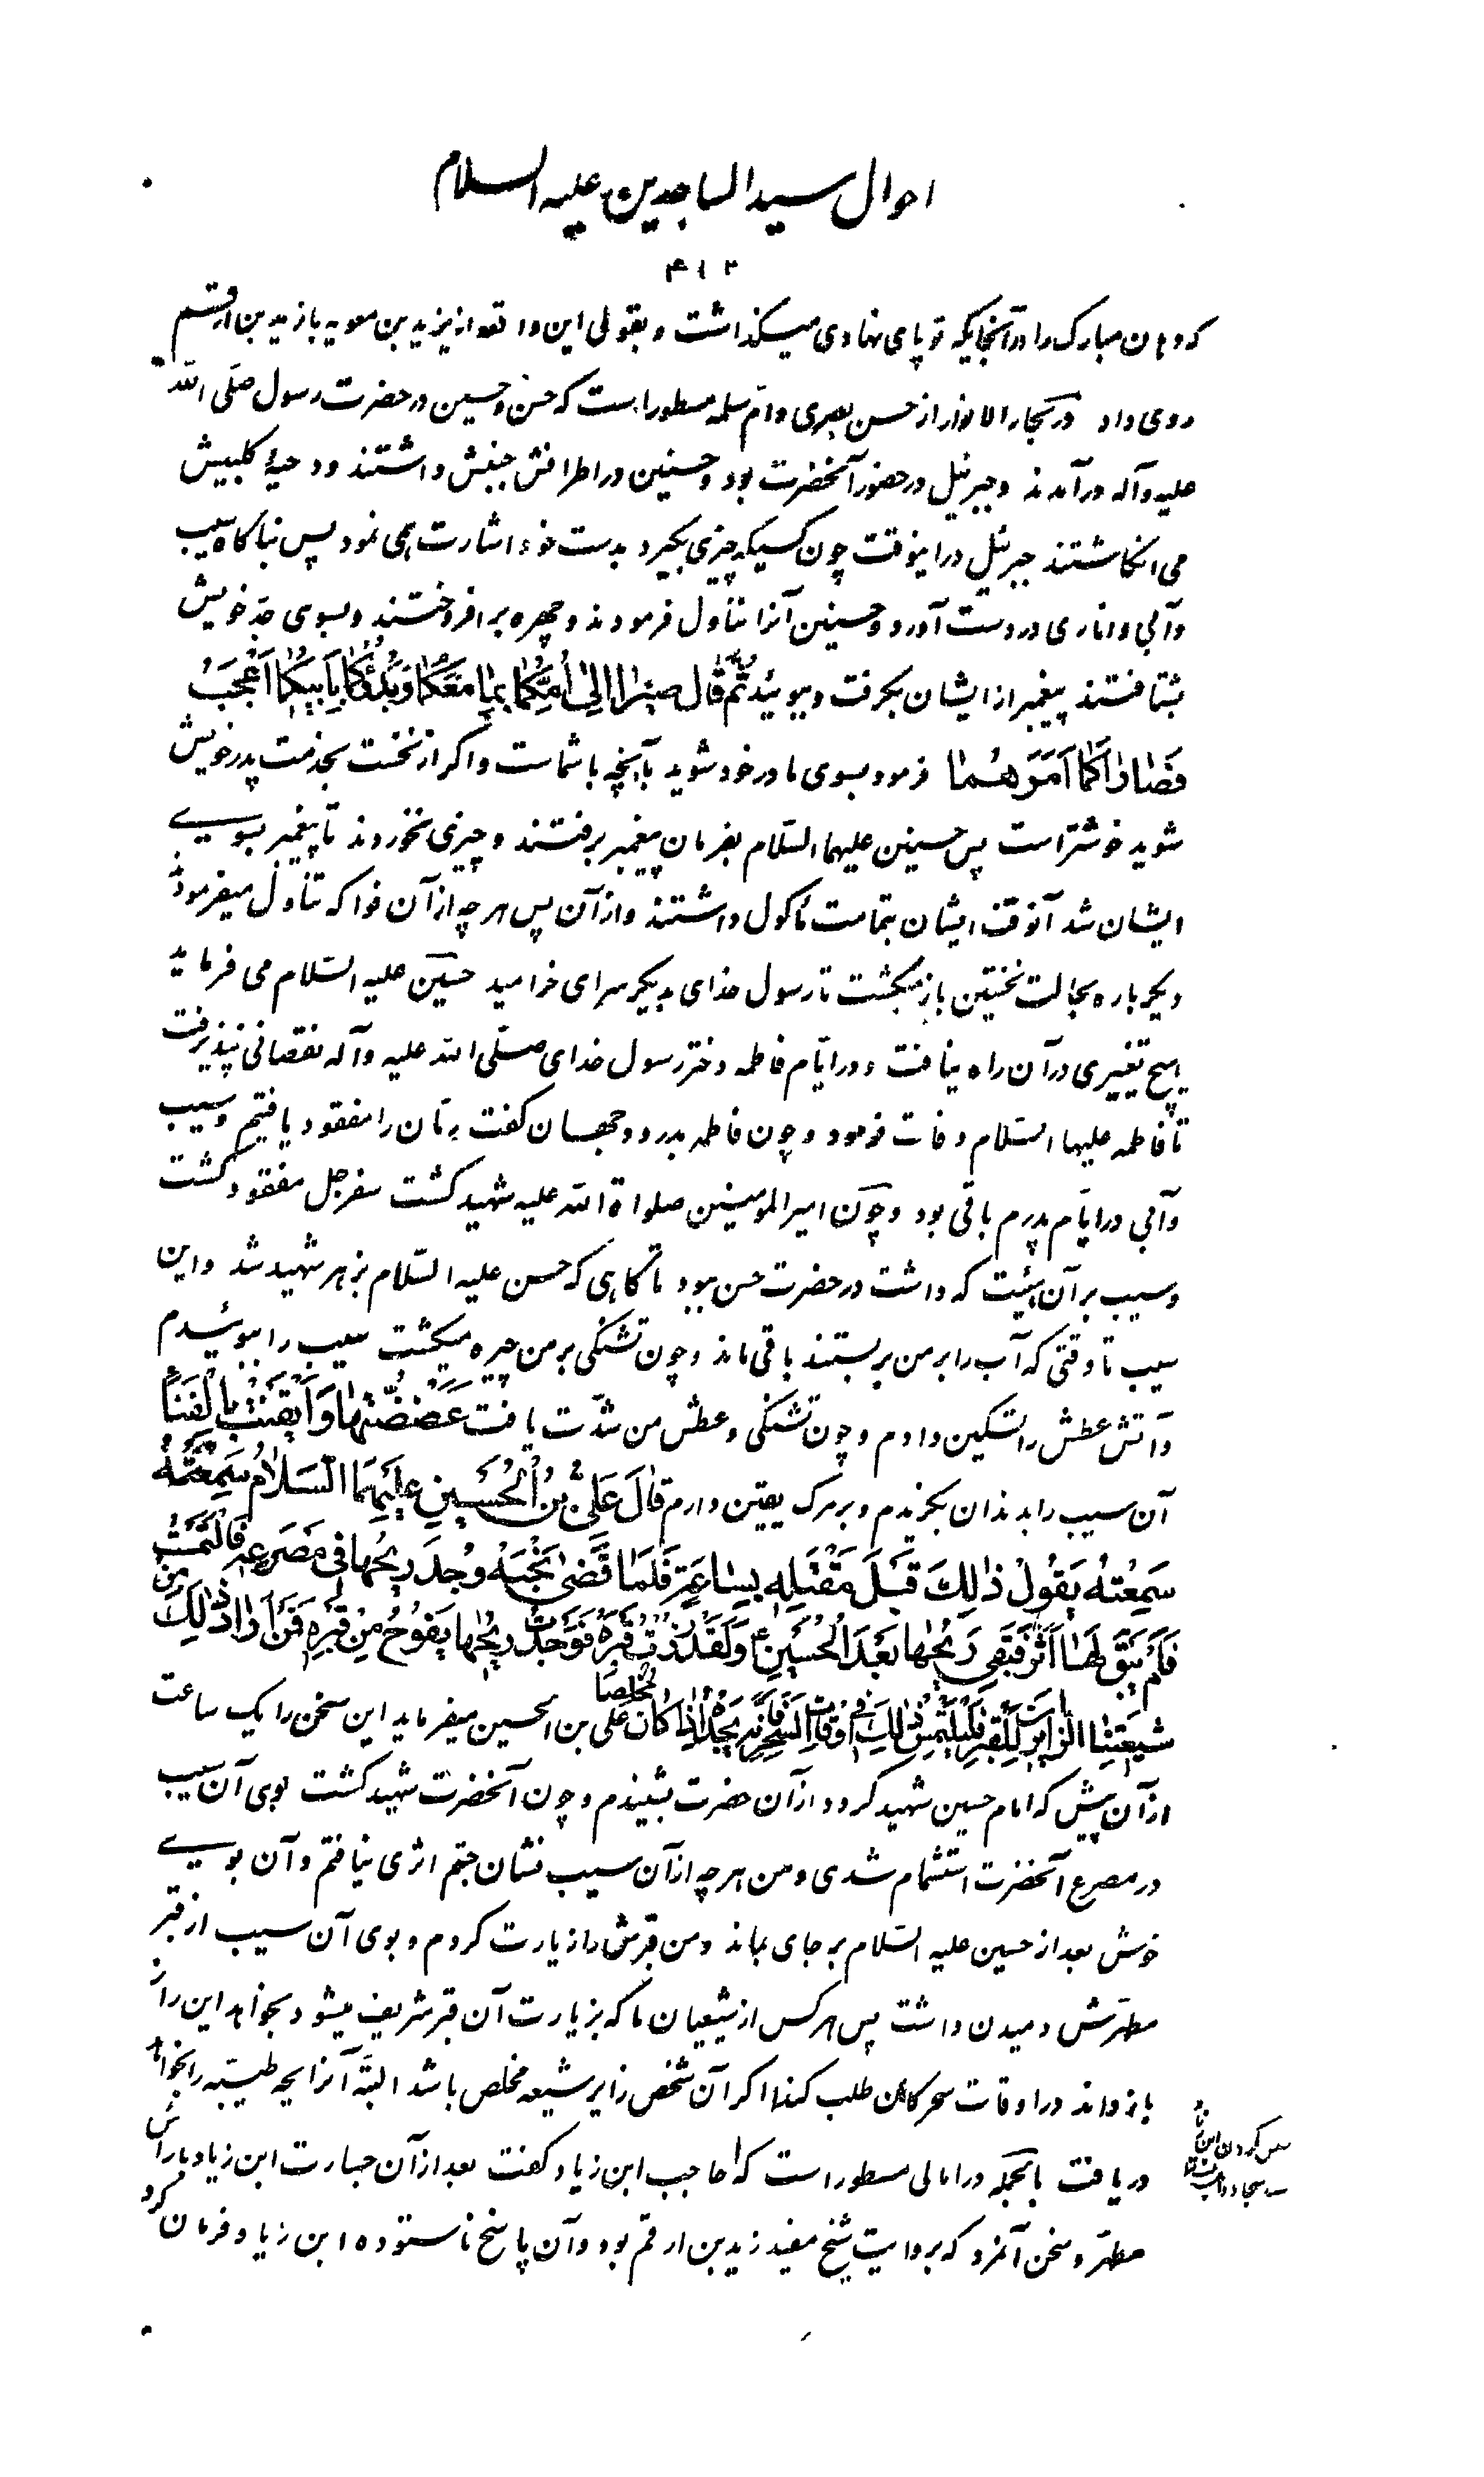 احوال سید الساجدین علیه السلام
۴۱۳
که دهان مبارک را در آنجایکه تو پای نهادی میگذاشت و بقولی این واقعه از یزید بن معویه با زید بن ارقم
روی داد در بحار الانوار از حسن بصری و ام سلمه مسطور است که حسن و حسین در حضرت رسول صلی الله
علیه و آله در آمدند و جبرئیل در حضور آنحضرت بود و حسنین در اطرافش جنبش داشتند و دحیهٔ کلبیش
می انگاشتند جبرئیل در اینوقت چون کسیکه چیزی بگیرد بدست خود اشارت همی نمود پس بناگاه سیب
و آبی و اناری در دست آورد و حسنین آنرا تناول فرمودند و چهره بر افروختند و بسوی جد خویش
بشتافتند پیغمبر از ایشان بگرفت و ببوئید ثُمَّ قالَ صِیرا اِلیٰ اُمِّکُما بِما مَعَکُما وَ بَدْؤُکُما بِاَبیکُما اَعْجَبُ
فَصارا کَما اَمَرَهُما فرمود بسوی مادر خود شوید بآنچه با شماست و اگر از نخست بخدمت پدر خویش
شوید خوشتر است پس حسنین علیهما السلام بفرمان پیغمبر برفتند و چیزی نخوردند تا پیغمبر بسوی
ایشان شد آنوقت ایشان بتمامت ماکول داشتند و از آن پس هر چه از آن فواکه تناول میفرمودند
دیگر باره بحالت نخستین باز میگشت تا رسول خدای بدیگر سرای خرامید حسین علیه السلام می فرماید
هیچ تغییری در آن راه نیافت و در ایام فاطمه دختر رسول خدای صلی الله علیه و آله نقصانی نپذیرفت
تا فاطمه علیها السلام وفات فرمود و چون فاطمه بدرود جهان گفت رمان را مفقود یافتیم و سیب
و آبی در ایام پدرم باقی بود و چون امیر المومنین صلواة الله علیه شهید گشت سفرجل مفقود گشت
و سیب بر آن هیئت که داشت در حضرت حسن ببود تا گاهی که حسن علیه السلام بزهر شهید شد و این
سیب تا وقتی که آب را بر من بر بستند باقی ماند و چون تشنگی بر من چیره میگشت سیب را ببوئیدم
و آتش عطش را تسکین دادم و چون تشنگی و عطش من شدت یافت عَضَضْتُها وَ اَیْقَنْتُ بِالْفَناءِ
آن سیب را بدندان بگزیدم و بر مرگ یقین دارم قالَ عَلِیُّ بْنُ الْحُسَیْنِ عَلَیْهِمَا السَّلامُ سَمِعْتُهُ
سَمِعْتُهُ یَقُولُ ذٰلِکَ قَبْلَ مَقْتَلِهِ بِساعَةٍ فَلَمّا قَضیٰ نَحْبَهُ وُجِدَ ریحُها فی مَصْرَعِهِ فَالْتُمِسَتْ
فَلَمْ یُبْقَ لَها اَثَرٌ فَبَقِیَ ریحُها بَعْدَ الْحُسَیْنِ ع وَ لَقَدْ زُرْتُ قَبْرَهُ فَوَجَدْتُ ریحَها یَفُوحُ مِنْ قَبْرِهِ فَمَنْ اَرادَ ذٰلِکَ مِنْ
شیعَتِنا الزّائِرینَ لِلْقَبْرِ فَلْیَلْتَمِسْ ذٰلِکَ فی اَوْقاتِ السَّحَرِ فَاِنَّهُ یَجِدُهُ اِذا کانَ مُخْلِصًا علی بن الحسین میفرماید این سخن را یک ساعت
از آن پیش که امام حسین شهید گردد از آن حضرت بشنیدم و چون آنحضرت شهید گشت بوی آن سیب
در مصرع آنحضرت استشمام شدی و من هر چه از آن سیب نشان جستم اثری نیافتم و آن بوی
خوش بعد از حسین علیه السلام بر جای بماند و من قبرش را زیارت کردم و بوی آن سیب از قبر
مطهرش دمیدن داشت پس هر کس از شیعیان ما که بزیارت آن قبر شریف میشود بخواهد این را
باز داند در اوقات سحرگاهان طلب کند اگر آن شخص زایر شیعه مخلص باشد البته آنرایحه طیبه را بخواهد
دریافت بالجمله در امالی مسطور است که حاجب ابن زیاد گفت بعد از آن جسارت ابن زیاد با رأس
مطهر و سخن آنمرد که بروایت شیخ مفید زید بن ارقم بود و آن پاسخ ناستوده ابن زیاد فرمان کرد